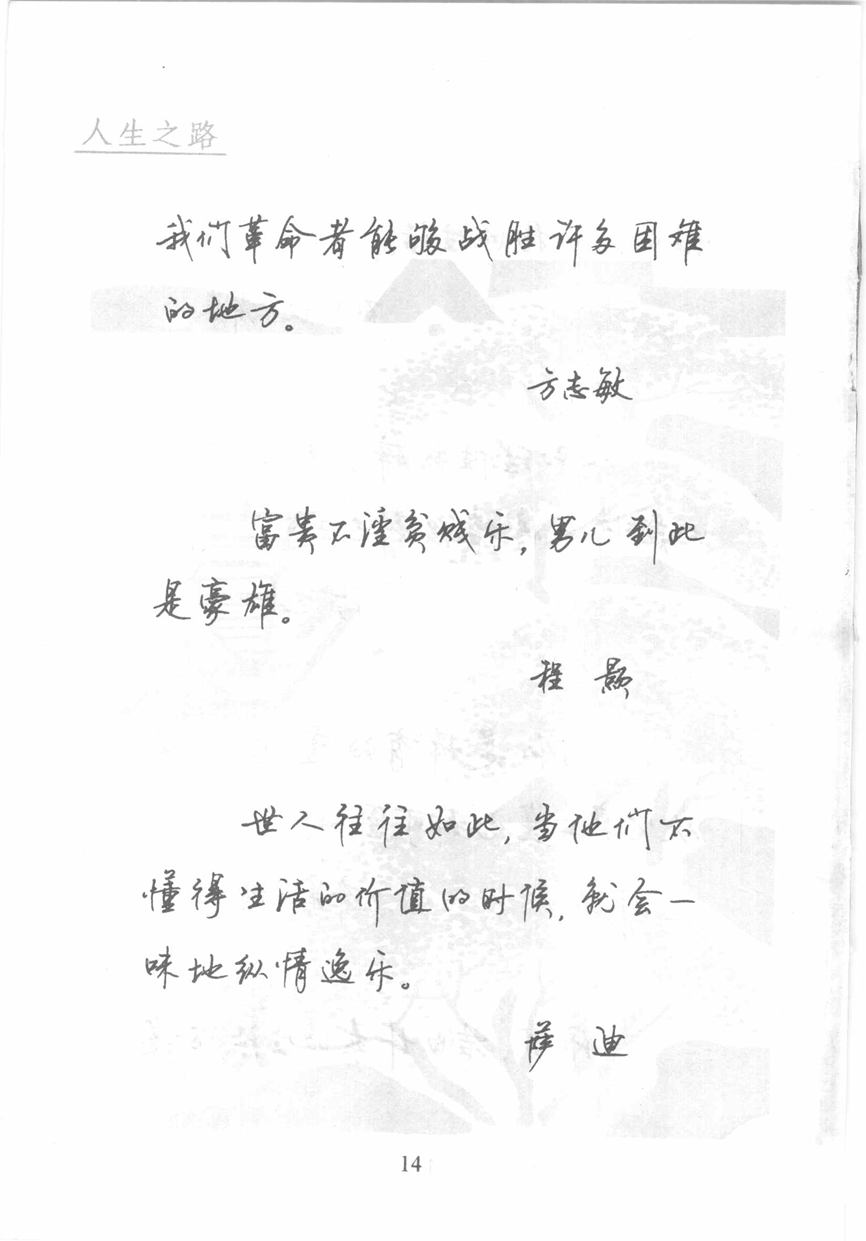 人生之路
我们革命者能够战胜许多困难
的地方。
方志敏
富贵不淫贫贱乐,男儿到此
是豪雄。
程颢
世人往往如此,当他们不
懂得生活的价值的时候,就会一
味地纵情逸乐。
萨迪
14